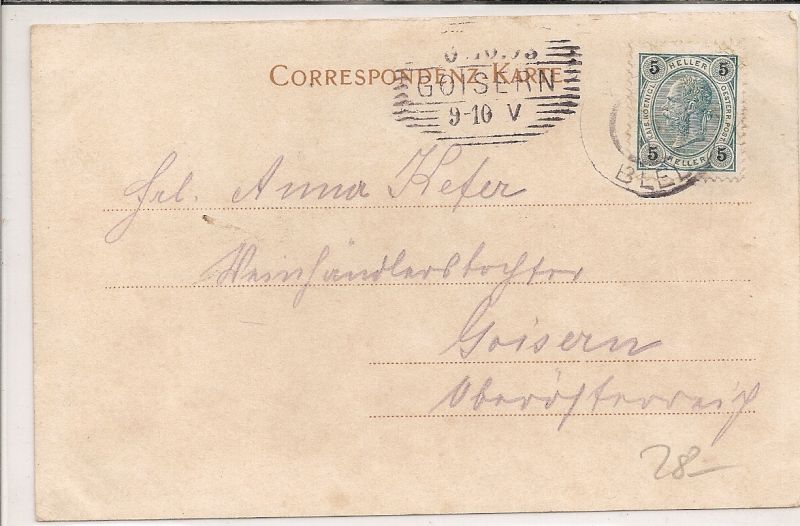 CORRESPONDENZ-KARTE
GOISERN
9-10 V
5 HELLER 5
KAIS. KOENIGL. OESTERR. POST
5 HELLER 5
BLED
Frl. Anna Kefer
Weinhändlerstochter
Goisern
Oberösterreich
28-